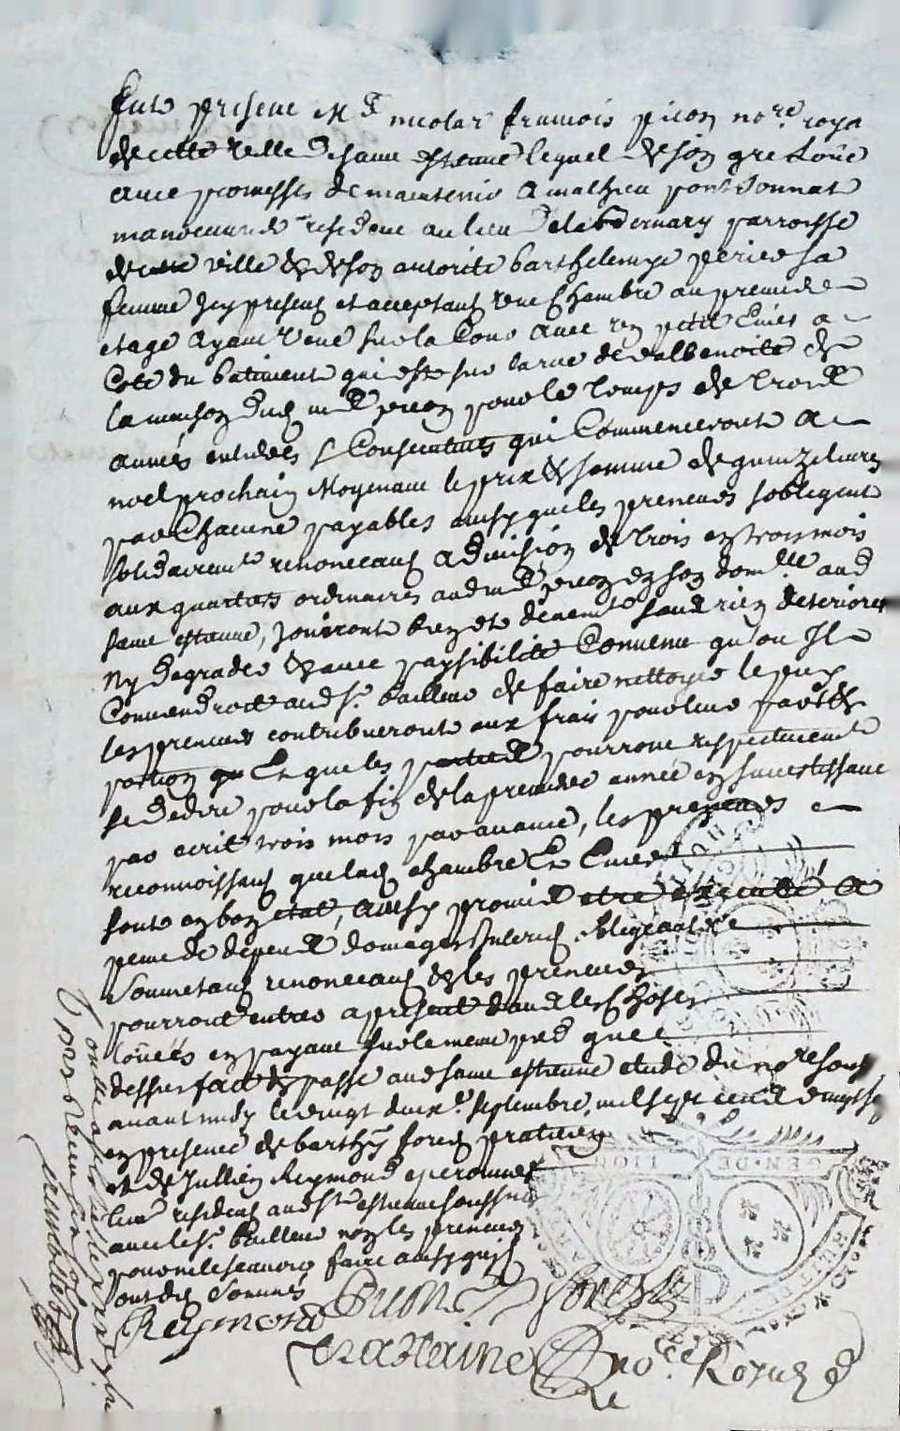 fut presens Me nicolas francois picon nore. royal
de cette ville de saint estienne lequel de son gre Loüe
avec promesses de maintenir a mathieu pont donnat
manoeuvre residant au lieu de parroisse
de cette ville & de son autorité barthelemye perier sa
femme Jcy presens et acceptans une Chambre au premier
etage ayant veüe sur la Cour avec un petit Evier a
Coté du batiment qui est sur la rue de valbenoite de
la maison dud. picon pour le temps de trois
années entieres & Consecutives qui Commenceront a
noel prochain Moyenant le prix & somme de quinze livres
par Chacune payables ainsy que les preneurs sobligent
solidairemt. renonceans a division de trois en trois mois
aux quartiers ordinaires aud. picon en son domlle. aud.
saint estienne, Joüiront bien et deuement sans rien deteriorer
Ny degrader & avec paysibilité Convenu qu'ou Jl
Conviendroit aud. sr. bailleur de faire nettoyer le puy
les preneurs contribueront aux frais pour leur part &
portion qu Et que les parties pourront respectivement
se dedire pour la fin de la premiere année en savertissant
par ecrit trois mois par avance, les preneurs
reconnoissans que lad. chambre Et Evier
sont en bon état, ainsy promis etre executé a
peine de depens domages Jnterets obligeant &c
soumetans renonceans & les preneurs
pourront entrer a present dans les Choses
loüées en payant sur le meme pied que
dessus fait & passé aud. saint estienne etude du nore. souss.
avant midy le vingt deux. septembre, mil sept cent
en presence de barthy. forest praticien
et de Jullien Reymond eperonnier
residens aud. st. estienne soussignés
avec le sr. bailleur non les preneurs
pour ne le scavoir faire ainsy quils
ont dit Sommés
Reymond Picon forest
nore. Royal